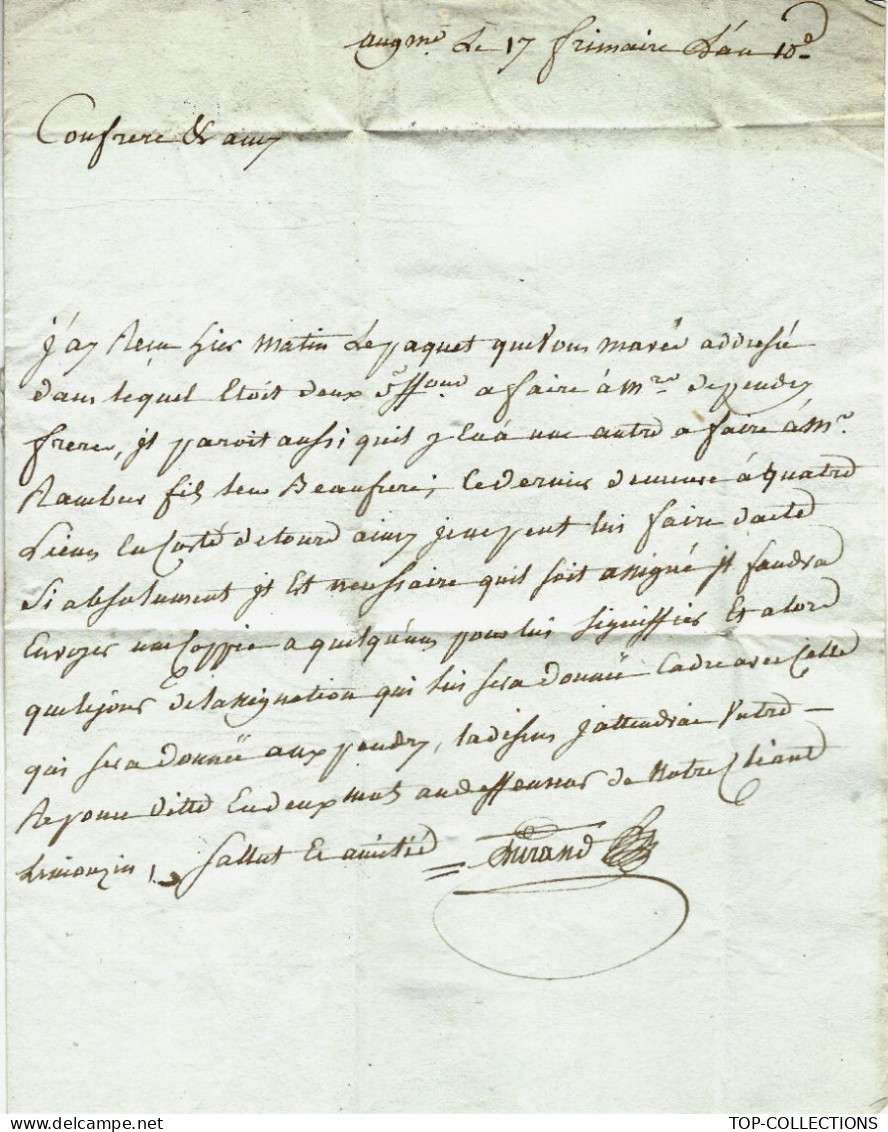 Le 17 frimaire L'an 10e
Confrere & amy
J'ay Recu hier matin Le paquet que Vous mavée addresié
dans léquel Etoit deux a faire à
frere, jl paroit aussi quil y En à une autre a faire à Mr.
Rambur fils leur Beaufrere; Ce dernier demeure à quatre
Lieux En Corté de tourd ainsy je ne peut lui faire dacte
Si absolument jl Est nessaire quil soit assigné jl faudra
Envoyer une Coppie a quelqu'un pour lui Signiffier Et alord
que le jour de lassignation qui lui sera donnée Cadre avec Celle
qui sera donnée aux la dessus J'attendrai Votre
Reponce Ditte En deux mots au deffenseur de Notre Cliant
Limouzin, Sallut Et amitié Durand
TOP-COLLECTIONS